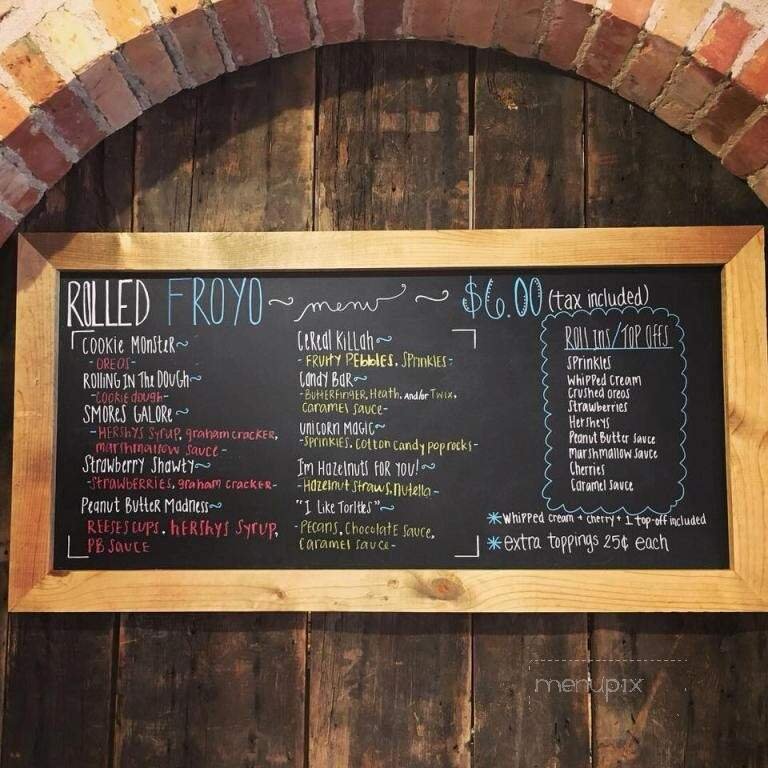 ROLLED FROYO ~ menu ~ $6.00 (tax included)
COOKIE MONSTER~
-OREOS-
ROLLING IN THE DOUGH~
-COOKIE DOUGH-
SMORES GALORE~
-HERSHYS SYRUP, graham cracker,
marshmallow sauce-
Strawberry Shawty~
-STRAWBERRIES, graham cracker-
Peanut Butter Madness~
REESES CUPS, HERSHYS SYRUP,
PB SAUCE
CeReal KiLLah~
-FRUITY PEbbles, SPRinkles-
Candy Bar~
-BUTTERFINGER, Heath, and/or Twix,
caramel sauce-
unicorn Magic~
-Sprinkles, Cotton Candy pop rocks-
Im Hazelnuts FOR YOU!~
-Hazelnut straws, nutella-
"I Like Tortles"~
-Pecans, Chocolate sauce,
caramel sauce-
ROLL INS/TOP OFFS
Sprinkles
Whipped cream
Crushed oreos
Strawberries
Hersheys
Peanut Butter sauce
Marshmallow sauce
Cherries
Caramel sauce
*Whipped cream + cherry + 1 top-off included
*extra toppings 25¢ each
menupix